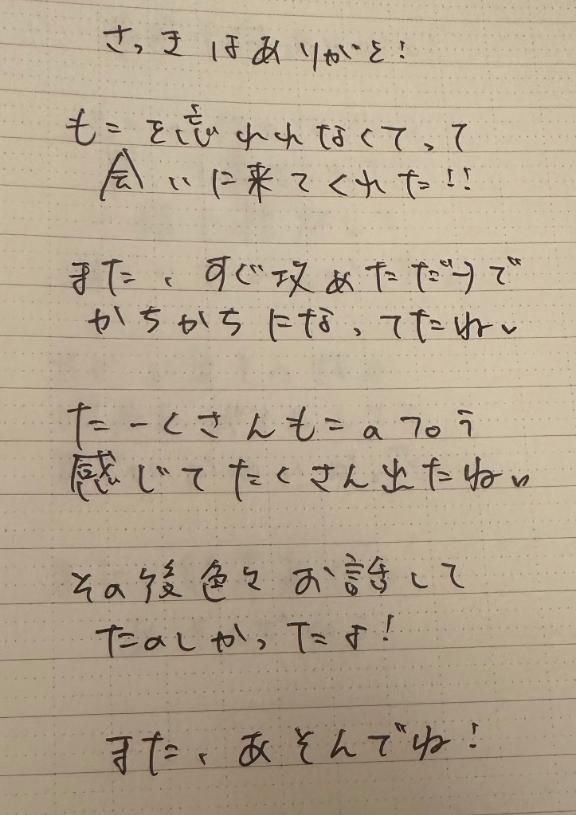 さっきはありがと!
もこを忘れれなくて、て
会いに来てくれた!!
また、すぐ攻めただけで
かちかちになってたね
たーくさんもこのプロう
感じてたくさん出たね
その後色々お話して
たのしかったよ!
また、あそんでね!